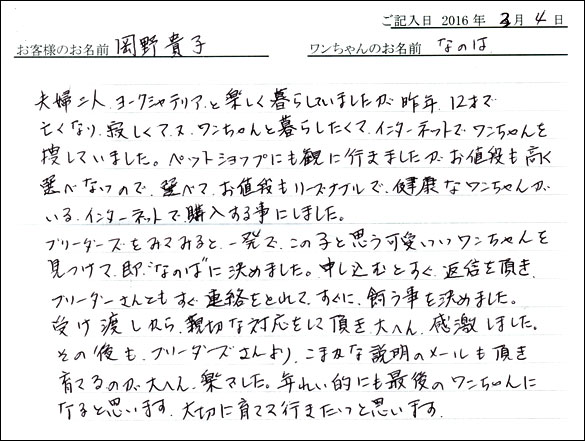 ご記入日 2016 年 3月 4 日
お客様のお名前 岡野貴子 ワンちゃんのお名前 なのは
夫婦二人、ヨークシャテリアと楽しく暮らしていましたが昨年、12才で
亡くなり、寂しくて、又、ワンちゃんと暮らしたくて、インターネットでワンちゃんを
捜していました。ペットショップにも観に行きましたが、お値段も高く
選べないので、選べて、お値段もリーズナブルで、健康なワンちゃんが
いる、インターネットで購入する事にしました。
ブリーダーズをみてみると、一発で、この子と思う可愛いいワンちゃんを
見つけて、即、"なのは"に決めました。申し込むとすぐ、返信を頂き、
ブリーダーさんともすぐ連絡をとれて、すぐに、飼う事を決めました。
受け渡しから、親切な対応をして頂き、大へん、感激しました。
その後も、ブリーダーズさんより、こまかな説明のメールも頂き
育てるのが、大へん、楽でした。年れい的にも最後のワンちゃんに
なると思います、大切に育てて行きたいと思います。